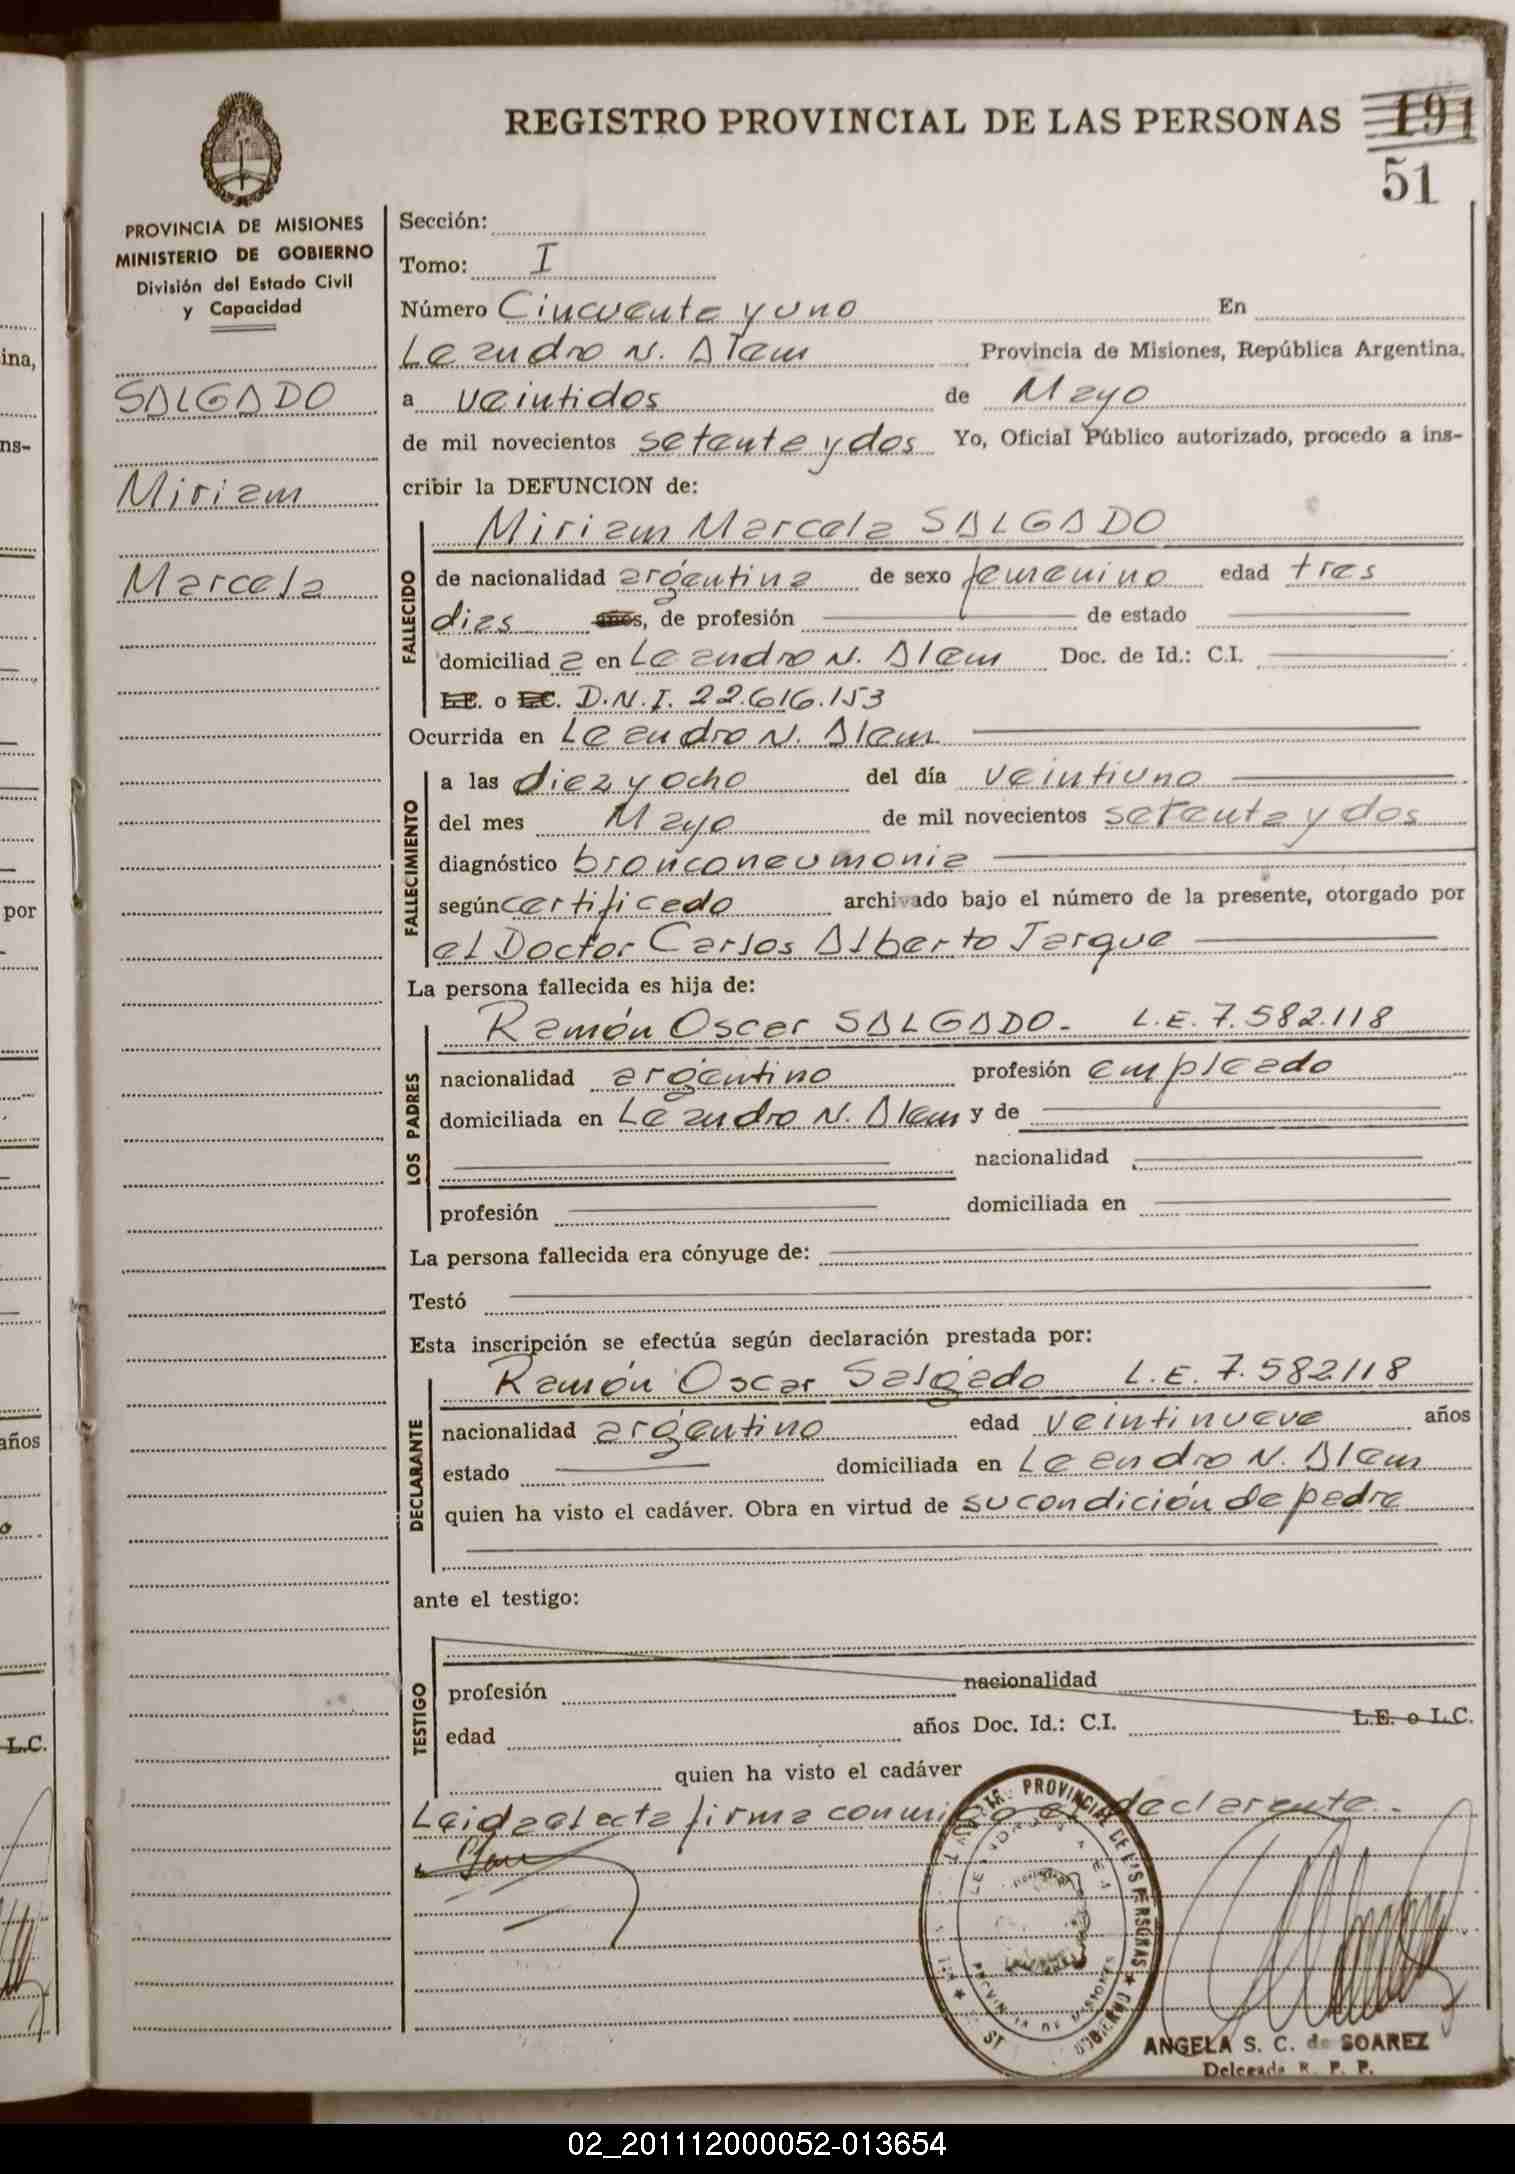 REGISTRO PROVINCIAL DE LAS PERSONAS 191
51
PROVINCIA DE MISIONES
MINISTERIO DE GOBIERNO
División del Estado Civil
y Capacidad
SALGADO
Miriam
Marcela
Sección:
Tomo: I
Número Cincuenta y uno En
Leandro N. Alem Provincia de Misiones, República Argentina,
a veintidos de Mayo
de mil novecientos setenta y dos Yo, Oficial Público autorizado, procedo a ins-
cribir la DEFUNCION de:
FALLECIDO
Miriam Marcela SALGADO
de nacionalidad argentina de sexo femenino edad tres
dias años, de profesión de estado
domiciliad a en Leandro N. Alem Doc. de Id.: C.I.
L.E. o L.C. D.N.I. 22.616.153
Ocurrida en Leandro N. Alem
FALLECIMIENTO
a las diez y ocho del día veintiuno
del mes Mayo de mil novecientos setenta y dos
diagnóstico bronconeumonia
según certificado archivado bajo el número de la presente, otorgado por
el Doctor Carlos Alberto Jarque
La persona fallecida es hija de:
LOS PADRES
Ramón Oscar SALGADO- L.E. 7.582.118
nacionalidad argentino profesión empleado
domiciliada en Leandro N. Alem y de
nacionalidad
profesión domiciliada en
La persona fallecida era cónyuge de:
Testó
Esta inscripción se efectúa según declaración prestada por:
DECLARANTE
Ramón Oscar Salgado L.E. 7.582.118
nacionalidad argentino edad veintinueve años
estado domiciliada en Leandro N. Alem
quien ha visto el cadáver. Obra en virtud de su condición de padre
ante el testigo:
TESTIGO
profesión nacionalidad
edad años Doc. Id.: C.I. L.E. o L.C.
quien ha visto el cadáver
Leida el acta firma conmigo el declarante.-
PROVINCIAL DE LAS PERSONAS
PROVINCIA DE MISIONES
ANGELA S. C. de SOAREZ
Delegada R. P. P.
ina,
ns-
por
años
L.C.
02_201112000052-013654